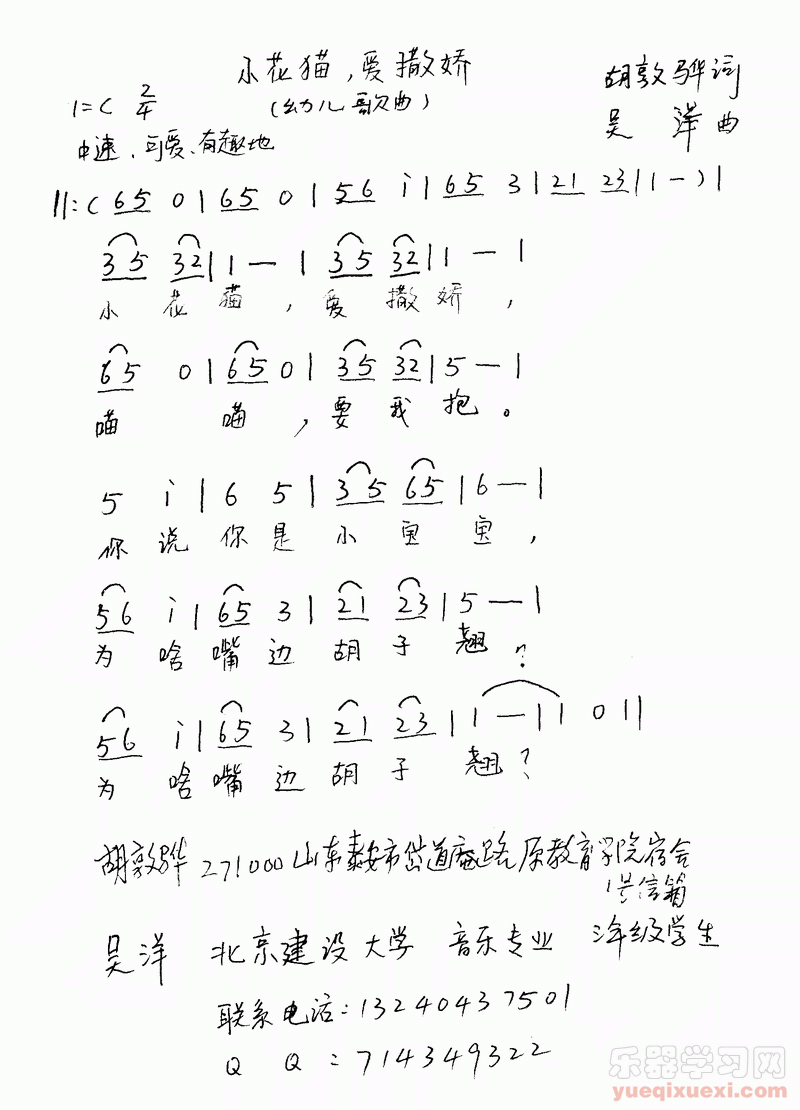 小花猫,爱撒娇
(幼儿歌曲)
胡敦骅词
吴洋曲
1=C 2/4
中速、可爱、有趣地
||:( 65 0 | 65 0 | 56 i | 65 3 | 21 23 | 1 — ) |
35 32 | 1 — | 35 32 | 1 — |
小花猫,爱撒娇,
65 0 | 65 0 | 35 32 | 5 — |
喵喵,要我抱。
5 i | 6 5 | 35 65 | 6 — |
你说你是小宝宝,
56 i | 65 3 | 21 23 | 5 — |
为啥嘴边胡子翘?
56 i | 65 3 | 21 23 | 1 — | 1 0 ||
为啥嘴边胡子翘?
胡敦骅 271000山东泰安市岱道庵路原教育学院宿舍
1号信箱
吴洋 北京建设大学 音乐专业 三年级学生
联系电话:13240437501
QQ:714349322
乐器学习网
yueqixuexi.com